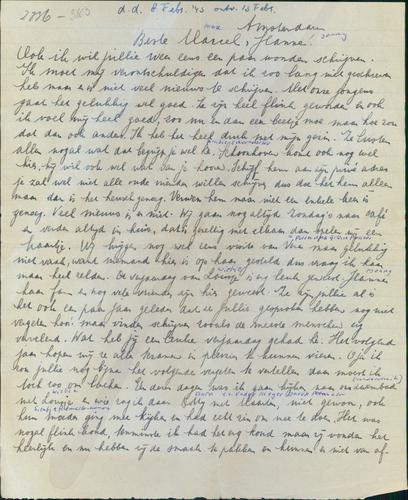 2886 - 383 d.d. 8 Febr. '43 ontv. 15 Febr.
Amsterdam
Beste Marcel, Jeanne!
Ook ik wil jullie weer eens een paar woorden schrijven.
Ik moet mij verontschuldigen dat ik zoo lang niet geschreven
heb maar er is niet veel nieuws te schrijven. Met onze jongens
gaat het gelukkig wel goed. Ze zijn heel flink geworden en ook
ik voel mij heel goed, zoo nu en dan een beetje moe maar hoe zou
dat dan ook anders. Ik heb het heel druk met mijn gezin. Te
allen nogal wat dat begrijp je wel hè. Schoonhoven komt ook nog wel
hier, hij wil ook wel wat van je hooren. Schrijf hem aan zijn privé adres
je zal wel niet alle oude vrienden willen schrijven dus dat het hem alleen
maar dan is het heusch genoeg. Verwen hem maar niet een enkele keer is
genoeg. Veel nieuws is er niet. Wij gaan nog altijd Zondag's naar café
en verder altijd in huis, doodstil met elkaar dan spelen wij een
kaartje. Wij krijgen nog wel eens visite van maar gelukkig
niet vaak, want niemand hier is op haar gesteld dus vraag ik haar
maar heel zelden. De verjaardag van is erg leuk geweest. Jeanne
haar en nog vele vrienden zijn hier geweest. Zie zij jullie als
het ook een paar jaren geleden dat ze jullie gesproken hebben nog niet
vergeten hoor! maar vinden schrijven zooals de meeste menschen erg
vervelend. Wat heb jij een leuke verjaardag gehad hè. Het volgend
jaar hopen wij ze alle samen in plezier te kunnen vieren. O ja ik
zou jullie nog bijna het volgende vergeten te vertellen daar moest ik
toch zoo om lachen. Een dezer dagen was ik gaan kijken naar
met en wie zag ik daar met niet gewoon, ook
hem moeder ging mee kijken en had echt zin om mee te doen. Het was
nogal flink koud, tenminste ik had het erg koud maar zij vonden het
heerlijk en nu hebben zij de smaak te pakken en kunnen er niet van af